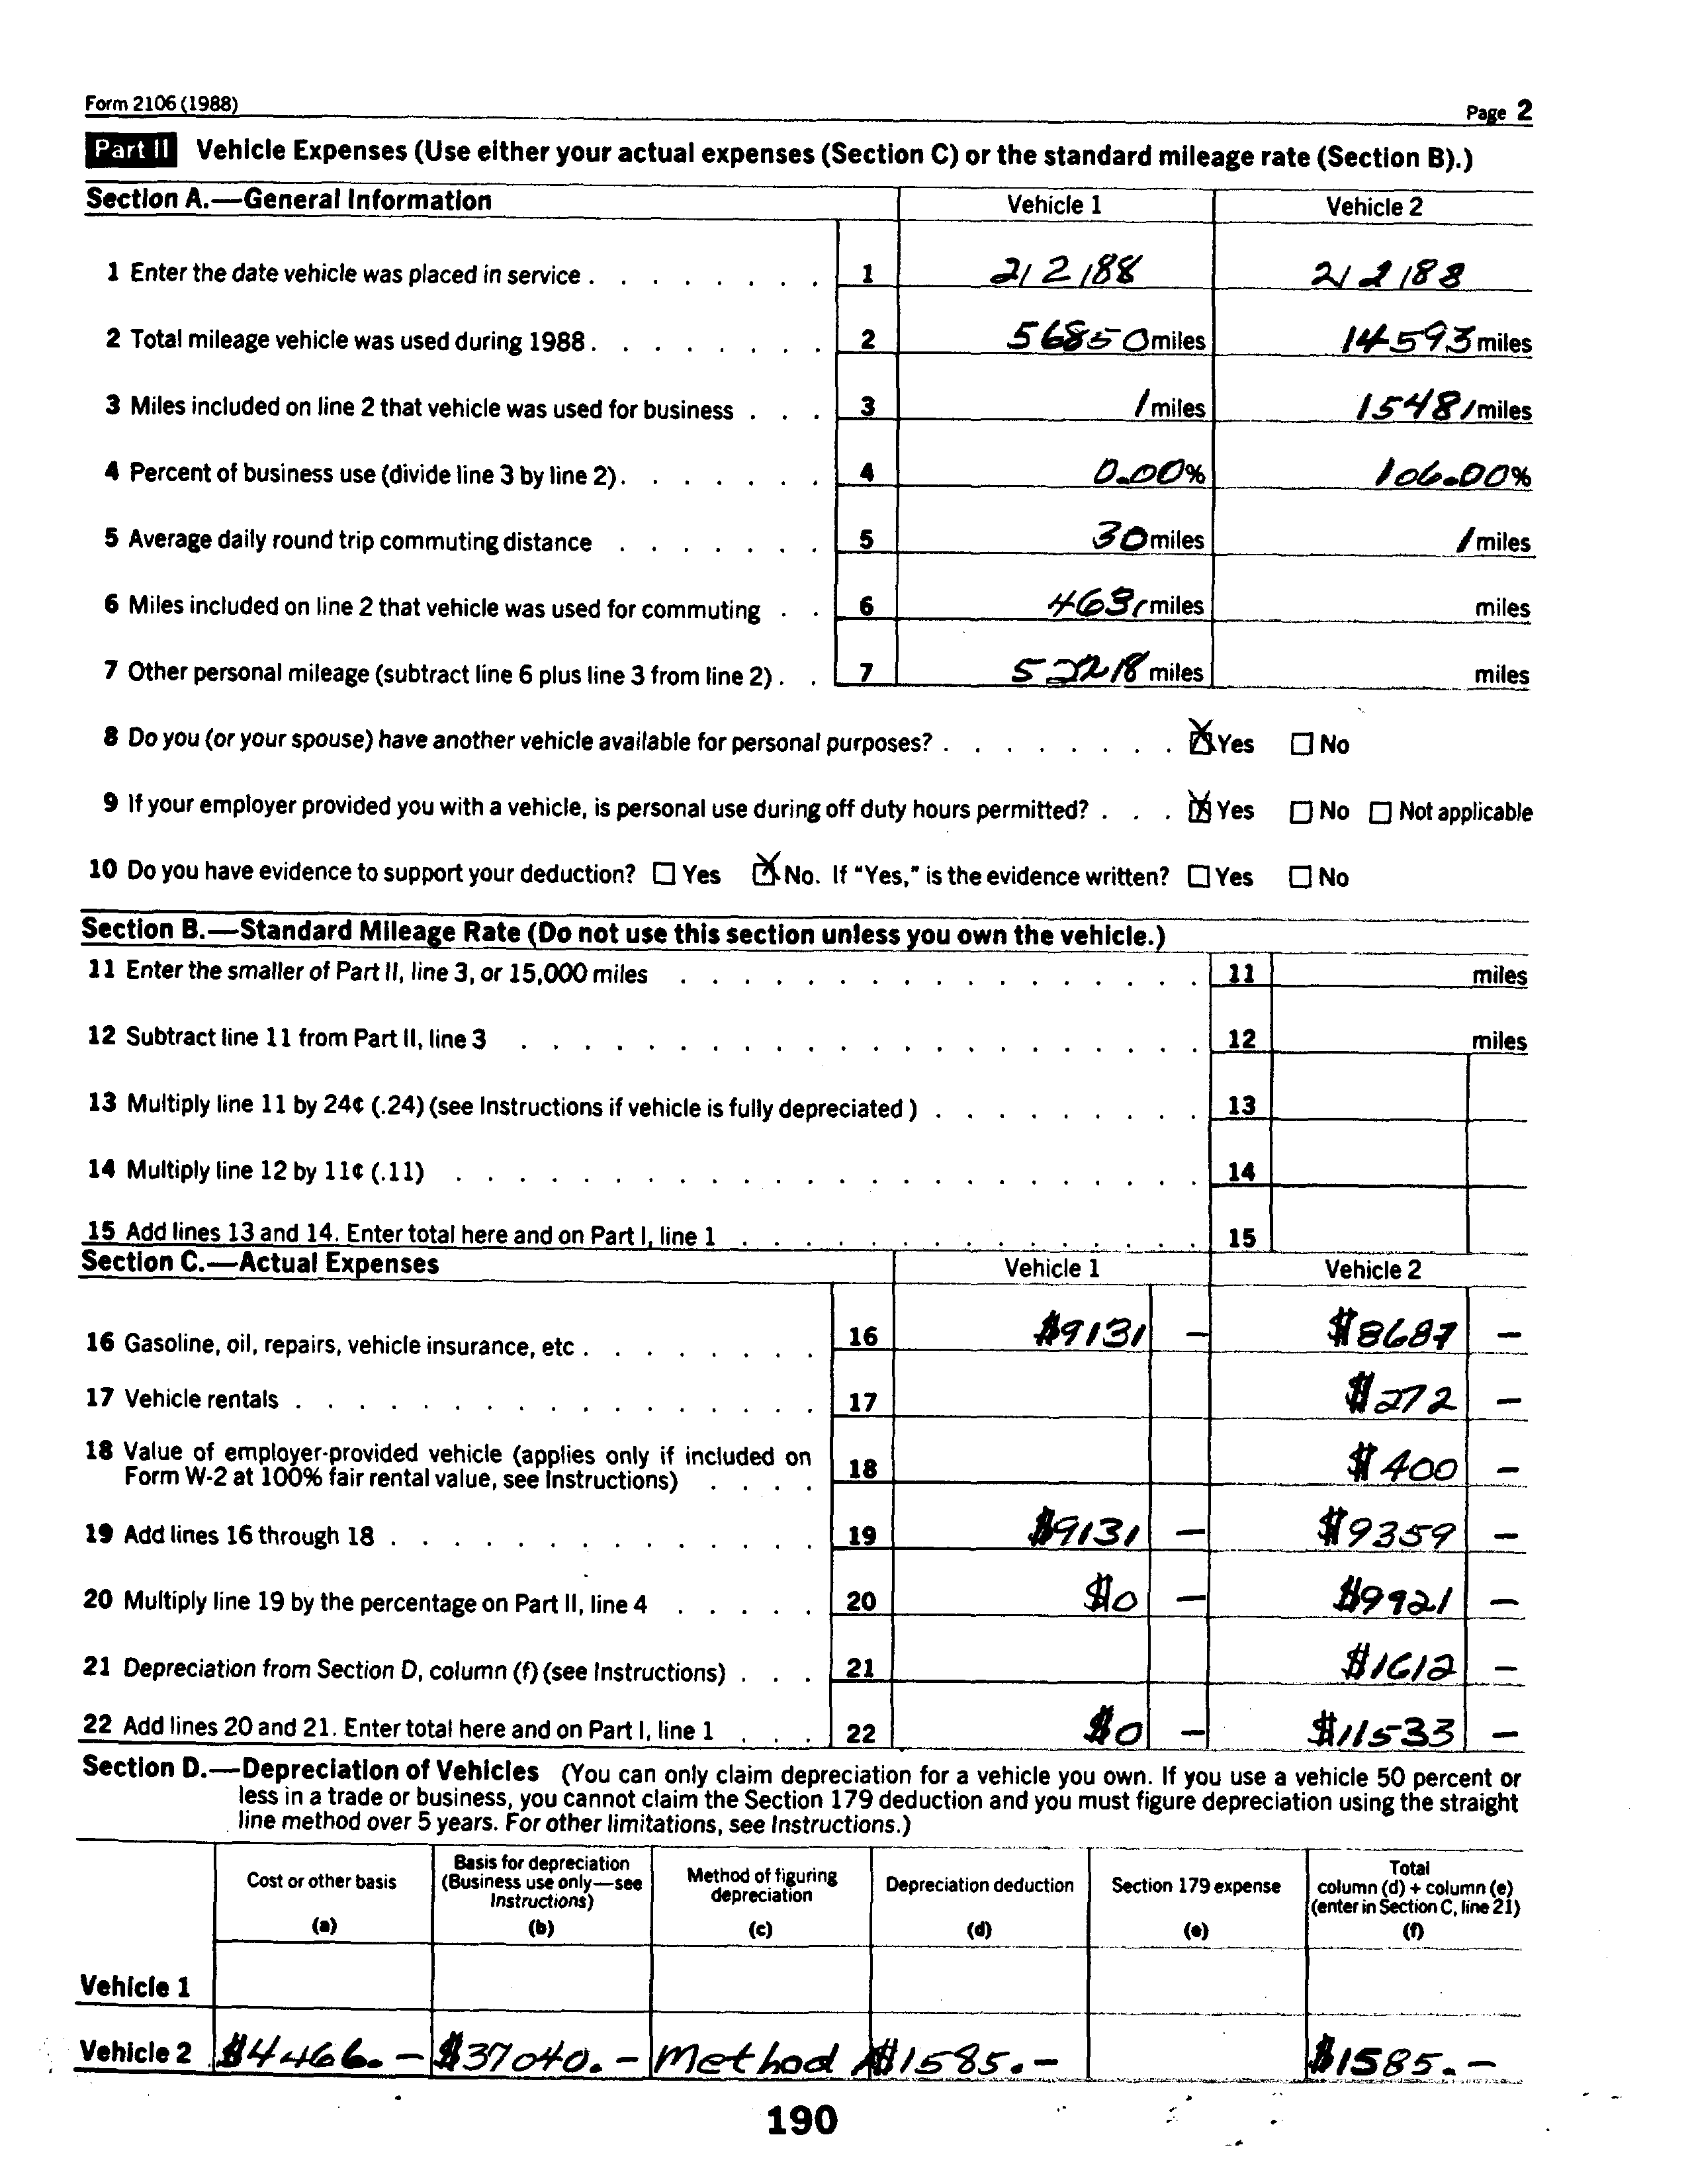 Form 2106 (1988) Page 2
Part II Vehicle Expenses (Use either your actual expenses (Section C) or the standard mileage rate (Section B).)
Section A.—General Information Vehicle 1 Vehicle 2
1 Enter the date vehicle was placed in service . . . . . . . . 1 2/2/88 2/2/88
2 Total mileage vehicle was used during 1988 . . . . . . . . 2 56850 miles 14593 miles
3 Miles included on line 2 that vehicle was used for business . . . 3 1 miles 15481 miles
4 Percent of business use (divide line 3 by line 2) . . . . . . . 4 0.00% 106.00%
5 Average daily round trip commuting distance . . . . . . . 5 30 miles 1 miles
6 Miles included on line 2 that vehicle was used for commuting . . 6 4631 miles miles
7 Other personal mileage (subtract line 6 plus line 3 from line 2) . . 7 52218 miles miles
8 Do you (or your spouse) have another vehicle available for personal purposes? . . . . . . . . ☒ Yes ☐ No
9 If your employer provided you with a vehicle, is personal use during off duty hours permitted? . . . ☒ Yes ☐ No ☐ Not applicable
10 Do you have evidence to support your deduction? ☐ Yes ☒ No. If "Yes," is the evidence written? ☐ Yes ☐ No
Section B.—Standard Mileage Rate (Do not use this section unless you own the vehicle.)
11 Enter the smaller of Part II, line 3, or 15,000 miles . . . . . . . . . . . . . . . . . 11 miles
12 Subtract line 11 from Part II, line 3 . . . . . . . . . . . . . . . . . . . . . . 12 miles
13 Multiply line 11 by 24¢ (.24) (see Instructions if vehicle is fully depreciated) . . . . . . . . . 13
14 Multiply line 12 by 11¢ (.11) . . . . . . . . . . . . . . . . . . . . . . . . 14
15 Add lines 13 and 14. Enter total here and on Part I, line 1 . . . . . . . . . . . . . . . 15
Section C.—Actual Expenses Vehicle 1 Vehicle 2
16 Gasoline, oil, repairs, vehicle insurance, etc . . . . . . . . 16 $9131 – $8687 –
17 Vehicle rentals . . . . . . . . . . . . . . . . . 17 $272 –
18 Value of employer-provided vehicle (applies only if included on
Form W-2 at 100% fair rental value, see Instructions) . . . . 18 $400 –
19 Add lines 16 through 18 . . . . . . . . . . . . . . 19 $9131 – $9359 –
20 Multiply line 19 by the percentage on Part II, line 4 . . . . . 20 $0 – $9921 –
21 Depreciation from Section D, column (f) (see Instructions) . . . 21 $1612 –
22 Add lines 20 and 21. Enter total here and on Part I, line 1 . . . 22 $0 – $11533 –
Section D.—Depreciation of Vehicles (You can only claim depreciation for a vehicle you own. If you use a vehicle 50 percent or
less in a trade or business, you cannot claim the Section 179 deduction and you must figure depreciation using the straight
line method over 5 years. For other limitations, see Instructions.)
Cost or other basis
(a)
Basis for depreciation
(Business use only—see
Instructions)
(b)
Method of figuring
depreciation
(c)
Depreciation deduction
(d)
Section 179 expense
(e)
Total
column (d) + column (e)
(enter in Section C, line 21)
(f)
Vehicle 1
Vehicle 2 $4466. – $37040. – Method A $1585. – $1585. –
190